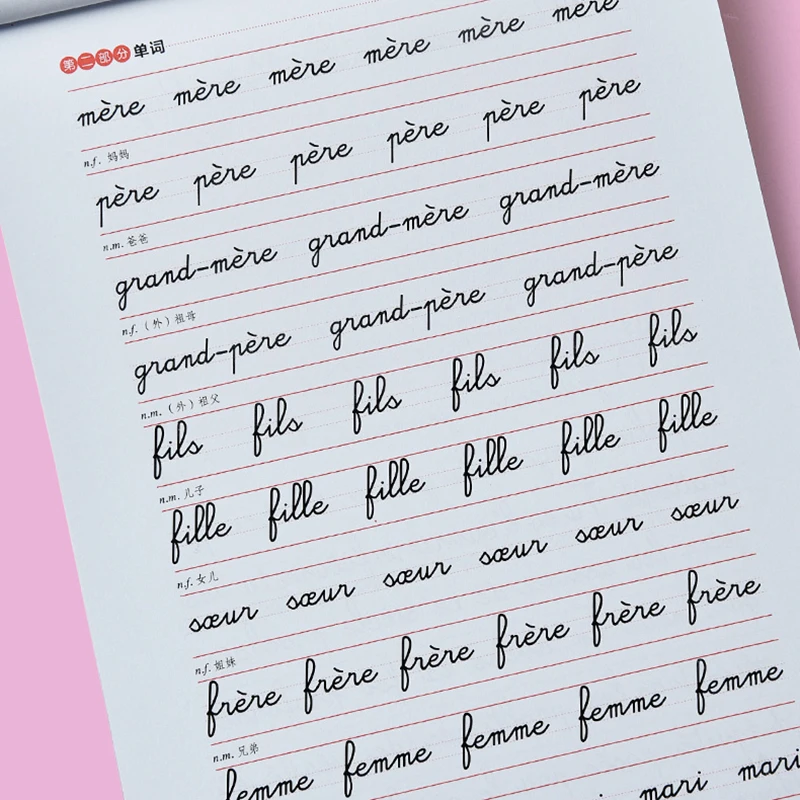 第二部分 单词
mère mère mère mère mère mère
n.f. 妈妈
père père père père père père
n.m. 爸爸
grand-mère grand-mère grand-mère
n.f. （外）祖母
grand-père grand-père grand-père
n.m. （外）祖父
fils fils fils fils fils fils
n.m. 儿子
fille fille fille fille fille fille
n.f. 女儿
sœur sœur sœur sœur sœur sœur
n.f. 姐妹
frère frère frère frère frère frère
n.m. 兄弟
femme femme femme femme femme
mari mari